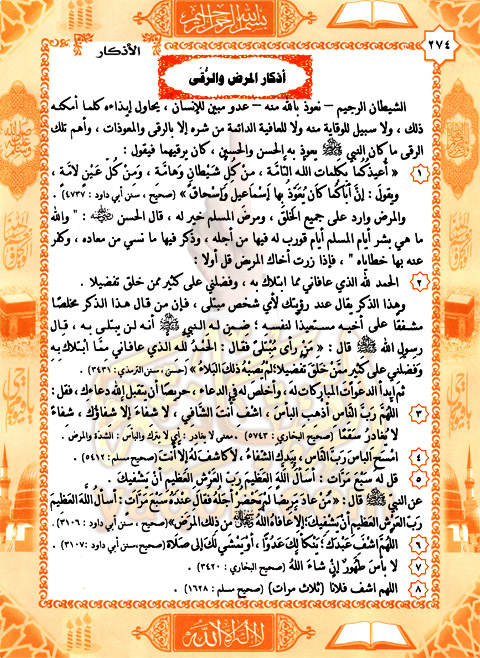 بسم الله الرحمن الرحيم
٢٧٤
الأذكار
أذكار المرض والرُّقَى
الشيطان الرجيم – نعوذ بالله منه – عدو مبين للإنسان ، يحاول إيذاءه كلما أمكنه
ذلك ، ولا سبيل للوقاية منه ولا للعافية الدائمة من شره إلا بالرقى والمعوذات ، وأهم تلك
الرقى ما كان النبي ﷺ يعوذ به الحسن والحسين ، كان يرقيهما فيقول :
١ « أُعِيذُكُمَا بِكَلِمَاتِ اللهِ التَّامَّةِ ، مِنْ كُلِّ شَيْطَانٍ وَهَامَّةٍ ، وَمِنْ كُلِّ عَيْنٍ لَامَّةٍ ،
ويقولُ : إنَّ أَبَاكُمَا كَانَ يُعَوِّذُ بِهَا إِسْمَاعِيلَ وَإِسْحَاقَ » (صحيح ، سنن أبي داود : ٤٧٣٧) .
والمرض وارد على جميع الخلق ، ومرض المسلم خير له ، قال الحسن : " والله
ما هي بشر أيام المسلم أيام قورب له فيها من أجله ، وذكر فيها ما نسي من معاده ، وكفر
عنه بها خطاياه " ، فإذا زرت أخاك المريض قل أولا :
٢ الحمد لله الذي عافاني مما ابتلاك به ، وفضلني على كثير ممن خلق تفضيلا .
وهذا الذكر يقال عند رؤيتك لأي شخص مبتلى ، فإن من قال هذا الذكر مخلصًا
مشفقًا على أخيه مستعيذًا لنفسه ؛ ضمن له النبي ﷺ أنه لن يبتلى به ، قال
رسول الله ﷺ قال : « مَنْ رَأَى مُبْتَلًى فَقَالَ : الحَمْدُ للهِ الذي عَافَانِي مِمَّا ابْتَلَاكَ بِهِ
وَفَضَّلَنِي عَلَى كَثِيرٍ مِمَّنْ خَلَقَ تَفْضِيلًا؛ لَمْ يُصِبْهُ ذَلِكَ البَلَاءُ » (حسن ، سنن الترمذي : ٣٤٣١) .
ثم ابدأ الدعوات المباركات له ، وأخلص له في الدعاء ، حريصًا أن يتقبل الله دعاءك ، فقل :
٣ اللهُمَّ رَبَّ النَّاسِ أَذْهِبِ البَاسَ ، اشْفِ أَنْتَ الشَّافِي ، لَا شِفَاءَ إِلَّا شِفَاؤُكَ ، شِفَاءً
لَا يُغَادِرُ سَقَمًا (صحيح البخاري : ٥٧٤٣) . معنى لا يغادر : أي لا يترك والباس : الشدة والمرض .
٤ امْسَحِ البَاسَ رَبَّ النَّاسِ ، بِيَدِكَ الشِّفَاءُ ، لَا كَاشِفَ لَهُ إِلَّا أَنْتَ (صحيح مسلم : ٥٤١٢) .
٥ قل له سَبْعَ مَرَّاتٍ : أَسْأَلُ اللهَ العَظِيمَ رَبَّ العَرْشِ العَظِيمِ أَنْ يَشْفِيَكَ .
عن النبي ﷺ قال : « مَنْ عَادَ مَرِيضًا لَمْ يَحْضُرْ أَجَلُهُ فَقَالَ عِنْدَهُ سَبْعَ مَرَّاتٍ : أَسْأَلُ اللهَ العَظِيمَ
رَبَّ العَرْشِ العَظِيمِ أَنْ يَشْفِيَكَ؛ إِلَّا عَافَاهُ اللهُ مِنْ ذَلِكَ المَرَضِ» (صحيح ، سنن أبي داود : ٣١٠٦) .
٦ اللَّهُمَّ اشْفِ عَبْدَكَ؛ يَنْكَأُ لَكَ عَدُوًّا ، أَوْ يَمْشِي لَكَ إِلَى صَلَاةٍ (صحيح ، سنن أبي داود : ٣١٠٧) .
٧ لَا بَأْسَ طَهُورٌ إِنْ شَاءَ اللهُ (صحيح البخاري : ٣٤٢٠) .
٨ اللهم اشف فلانا (ثلاث مرات) (صحيح مسلم : ١٦٢٨) .
لا إله إلا الله